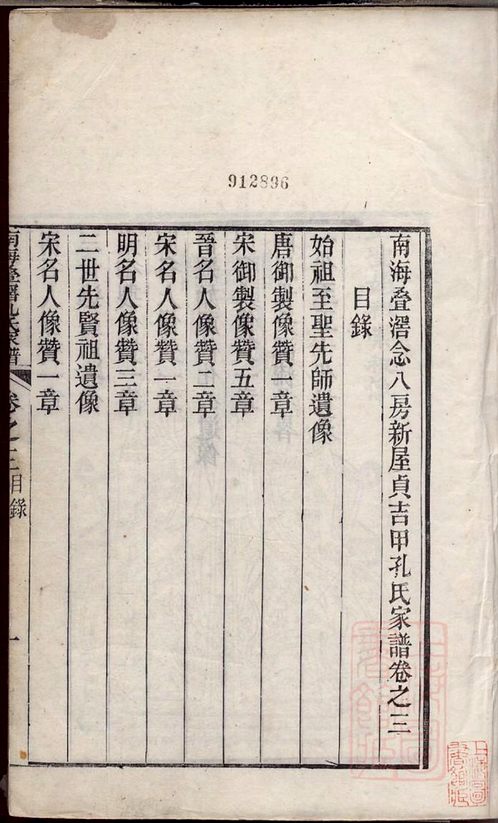 912896
南海叠滘念八房新屋貞吉甲孔氏家譜卷之三
目錄
始祖至聖先師遺像
唐御製像贊一章
宋御製像贊五章
晉名人像贊二章
宋名人像贊一章
明名人像贊三章
二世先賢祖遺像
宋名人像贊一章
南海叠滘孔氏家譜
卷之三目錄
一